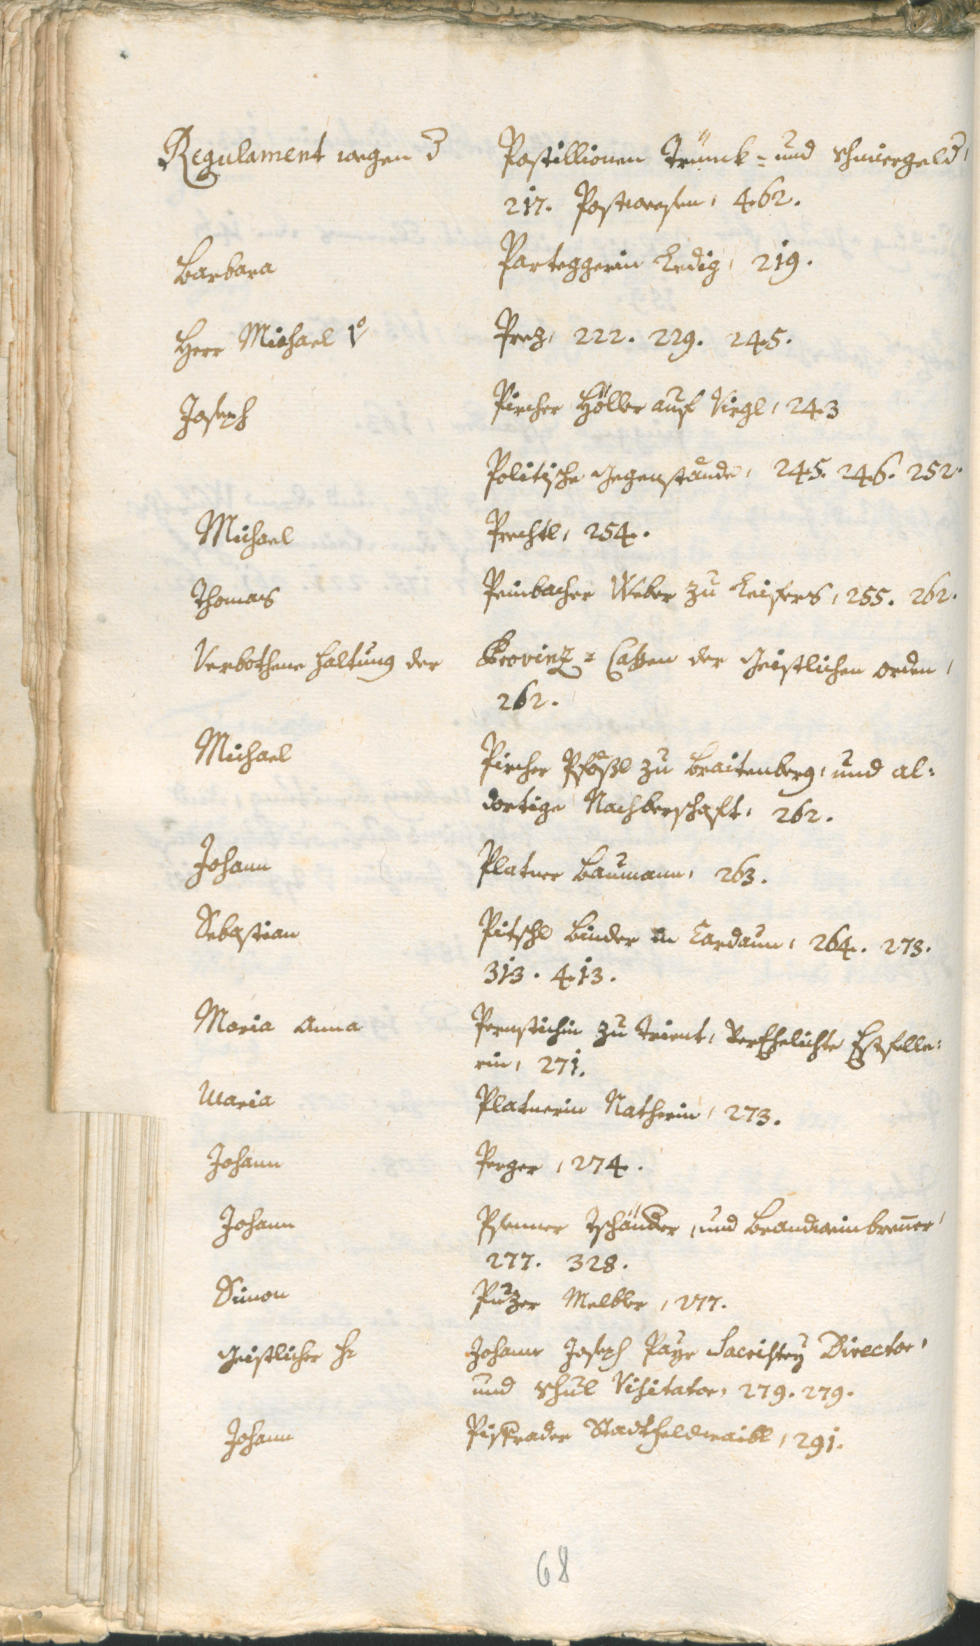 Regulament wegen d Postillionen Trünck= und Schmiergeld,
217. Postwesen, 462.
Barbara Parteggerin Ledig, 219.
Herr Michael Prez, 222. 229. 245.
Joseph Pircher Höller auf Virgl, 243
Politische Gegenstände, 245. 246. 252.
Michael Prechtl, 254.
Thomas Peinbacher Weber zu Leifers, 255. 262.
Verbothene Haltung der Provinz= Cassen der Geistlichen Orden,
262.
Michael Pircher Pfößl zu Breitenberg, und al=
dortige Nachberschaft, 262.
Johann Platner Baumann, 263.
Sebastian Pitschl Binder in Cardaun, 264. 273.
313. 413.
Maria Anna Pernstichin zu Trient, Verehelichte Estfelle=
rin, 271.
Maria Platnerin Natherin, 273.
Johann Perger, 274.
Johann Psenner Ischänder, und Brandweinbrenner,
277. 328.
Simon Puzer Melbler, 277.
Geistlicher Hr Johann Joseph Payr Sacristey Director,
und Schul Visitator, 279. 279.
Johann Pisprader Stadtfeldwaibl, 291.
68